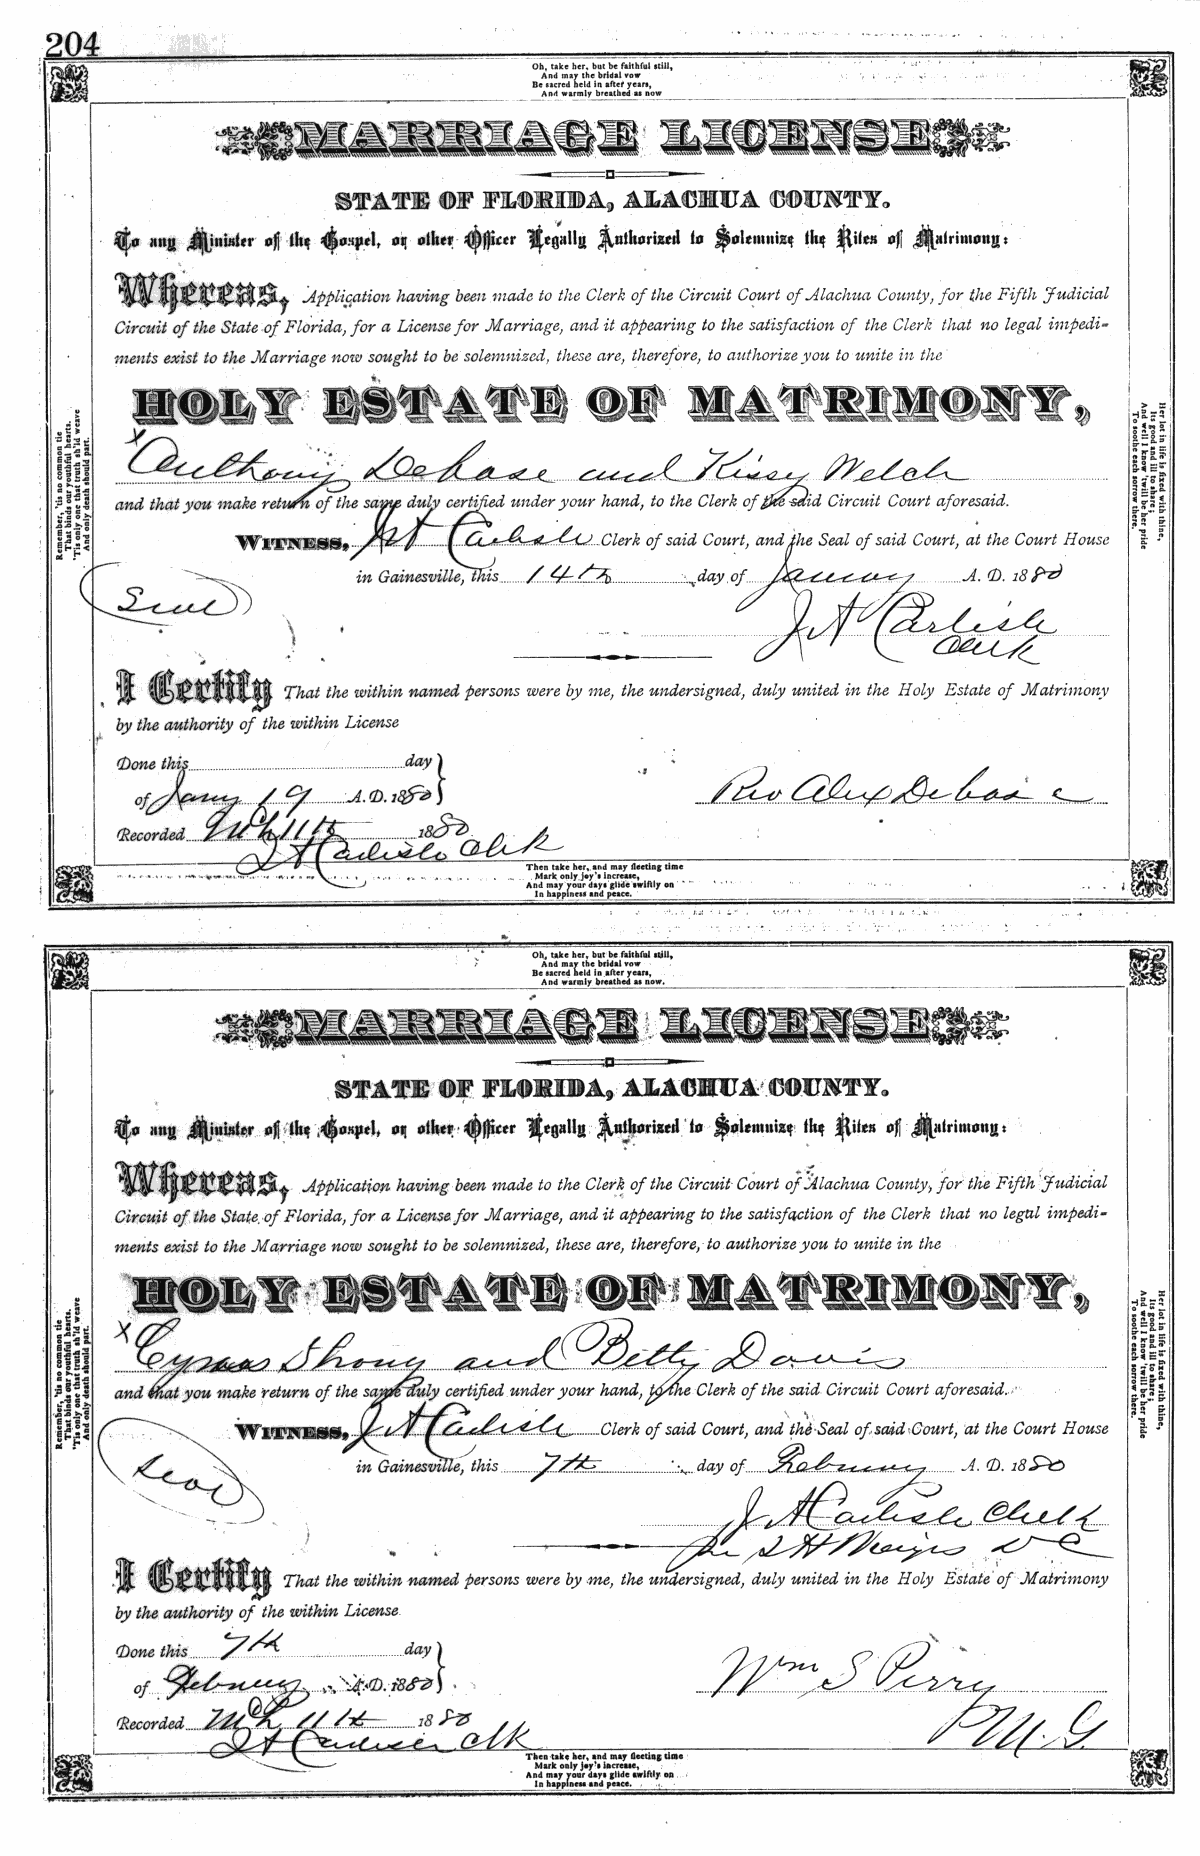 204
Oh, take her, but be faithful still,
And may the bridal vow
Be sacred held in after years,
And warmly breathed as now
MARRIAGE LICENSE
STATE OF FLORIDA, ALACHUA COUNTY.
To any Minister of the Gospel, or other Officer Legally Authorized to Solemnize the Rites of Matrimony:
Whereas, Application having been made to the Clerk of the Circuit Court of Alachua County, for the Fifth Judicial
Circuit of the State of Florida, for a License for Marriage, and it appearing to the satisfaction of the Clerk that no legal impedi-
ments exist to the Marriage now sought to be solemnized, these are, therefore, to authorize you to unite in the
HOLY ESTATE OF MATRIMONY,
x Anthony Debose and Kissy Welch
and that you make return of the same duly certified under your hand, to the Clerk of the said Circuit Court aforesaid.
WITNESS, J A Carlisle Clerk of said Court, and the Seal of said Court, at the Court House
in Gainesville, this 14th day of January A. D. 1880
Seal
J A Carlisle
Clerk
I Certify That the within named persons were by me, the undersigned, duly united in the Holy Estate of Matrimony
by the authority of the within License
Done this day
of Jany 19 A. D. 1880
Rev Alex Debose
Recorded Mch 11th 1880
J A Carlisle Clk
Then take her, and may fleeting time
Mark only joy's increase,
And may your days glide swiftly on
In happiness and peace.
Remember, 'tis no common tie
That binds our youthful hearts.
'Tis only one that truth sh'ld weave
And only death should part.
Her lot in life is fixed with thine,
Its good and ill to share;
And well I know 'twill be her pride
To soothe each sorrow there.
Oh, take her, but be faithful still,
And may the bridal vow
Be sacred held in after years,
And warmly breathed as now.
MARRIAGE LICENSE
STATE OF FLORIDA, ALACHUA COUNTY.
To any Minister of the Gospel, or other Officer Legally Authorized to Solemnize the Rites of Matrimony:
Whereas, Application having been made to the Clerk of the Circuit Court of Alachua County, for the Fifth Judicial
Circuit of the State of Florida, for a License for Marriage, and it appearing to the satisfaction of the Clerk that no legal impedi-
ments exist to the Marriage now sought to be solemnized, these are, therefore, to authorize you to unite in the
HOLY ESTATE OF MATRIMONY,
x Cyrus Shony and Betty Davis
and that you make return of the same duly certified under your hand, to the Clerk of the said Circuit Court aforesaid.
WITNESS, J A Carlisle Clerk of said Court, and the Seal of said Court, at the Court House
in Gainesville, this 7th day of February A. D. 1880
Seal
J A Carlisle Clerk
D C
I Certify That the within named persons were by me, the undersigned, duly united in the Holy Estate of Matrimony
by the authority of the within License
Done this 7th day
of February A. D. 1880
Wm S Perry
M. G.
Recorded Mch 11th 1880
J A Carlisle Clk
Then take her, and may fleeting time
Mark only joy's increase,
And may your days glide swiftly on
In happiness and peace.
Remember, 'tis no common tie
That binds our youthful hearts.
'Tis only one that truth sh'ld weave
And only death should part.
Her lot in life is fixed with thine,
Its good and ill to share;
And well I know 'twill be her pride
To soothe each sorrow there.